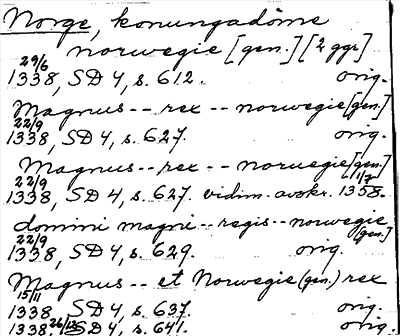 Norge, konungadöme
norwegie [gen.] [2 ggr]
29/6
1338, SD 4, s. 612. orig.
Magnus -- rex -- norwegie [gen.]
22/9
1338, SD 4, s. 627. orig.
Magnus -- rex -- noruegie [gen.]
22/9 1/7
1338, SD 4, s. 627. vidim. avskr. 1358.
domini magni -- regis -- norwegie [gen.]
22/9
1338, SD 4, s. 629. orig.
Magnus -- et Norwegie (gen.) rex
15/11
1338, SD 4, s. 637. orig.
1338 SD 4, s. 641. orig.